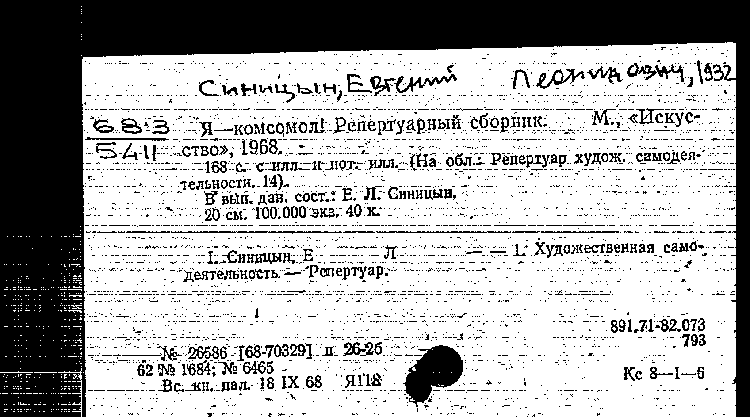 Синицын, Евгений Леонидович, 1932
68-3
5411
Я—комсомол! Репертуарный сборник. М., «Искус-
ство», 1968.
168 с. с илл. и нот. илл. (На обл.: Репертуар худож. самодея-
тельности. 14).
В вып. дан. сост.: Е. Л. Синицын.
20 см. 100.000 экз. 40 к.
I. Синицын, Е Л — — 1. Художественная само-
деятельность — Репертуар.
891.71-82.073
793
№ 26586 [68-70329] п 26-25
62 № 1684; № 6465
Вс. кн. пал. 18 IX 68 Я118
Кс 8—1—6